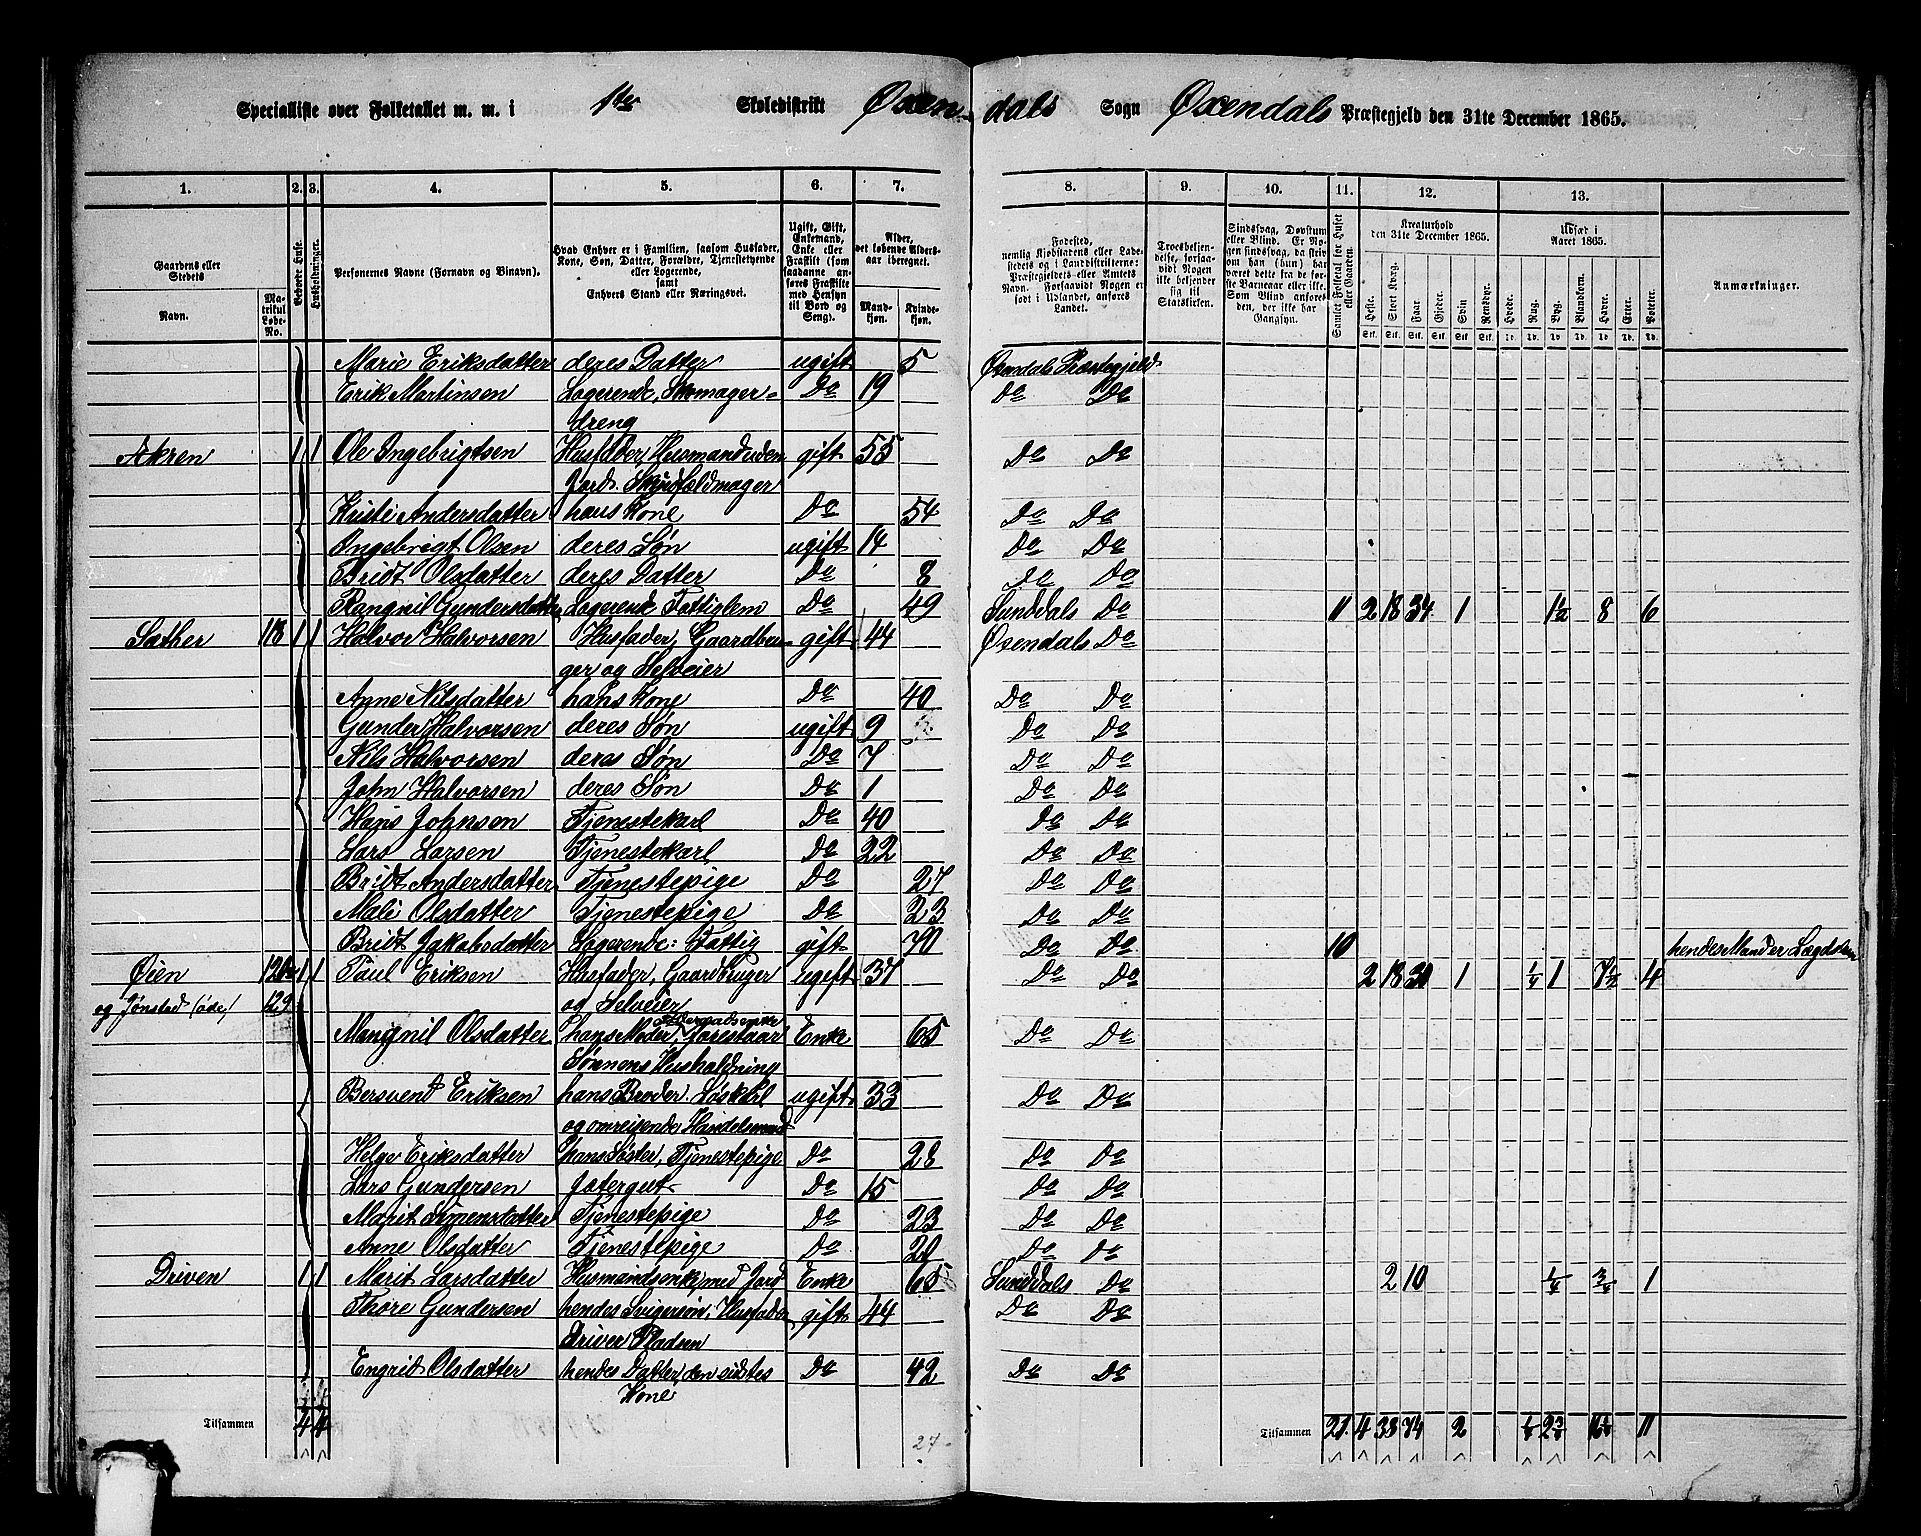 Specialliste over Folketallet m. m. i 1ste Skoledistrikt Øxendals Sogn Øxendals Præstegjeld den 31te December 1865.
1. 2. 3. 4. 5. 6. 7. 8. 9. 10. 11. 12. 13.
Gaardens eller Stedets
Navn.
Matrikul Løbe-No.
Beboede Huse.
Husholdninger.
Personernes Navne (Fornavn og Binavn).
Hvad Enhver er i Familien, saasom Husfader, Kone, Søn, Datter, Forældre, Tjenestetyende eller Logerende, samt Enhvers Stand eller Næringsvei.
Ugift, Gift, Enkemand, Enke eller Fraskilt (som saadanne anføres Fraskilte med Hensyn til Bord og Seng).
Alder, det løbende Alders-aar iberegnet.
Mandkjøn. Kvindekjøn.
Fødested, nemlig Kjøbstædens eller Ladestedets og i Landdistrikterne: Præstegjeldets eller Amtets Navn. Forsaavidt Nogen er født i Udlandet, anføres Landet.
Troesbekjendelse, forsaavidt Nogen ikke bekjender sig til Statskirken.
Sindssvag, Døvstum eller Blind. Er Nogen sindssvag, da skriv om han (hun) har været dette fra de første Barneaar eller ikke. Som Blind anføres den, der ikke har Gangsyn.
Samlet Folketal for Huset eller Gaarden.
Kreaturhold den 31te December 1865.
Heste. Stort Kvæg. Faar. Gjeder. Svin. Rensdyr.
Udsæd i Aaret 1865.
Hvede. Rug. Byg. Blandkorn. Havre. Erter. Poteter.
Anmærkninger.
Marie Eriksdatter deres Datter ugift 5 Øxendals Præstegjeld
Erik Martinsen Logerende, Skomager- Do 19 Do Do
dreng
Akren 1 1 Ole Ingebrigtsen Husfader, Husmand uden gift 55 Do Do
Jord. Skindfældmager
Kristi Andersdatter hans Kone Do 54 Do Do
Ingebrigt Olsen deres Søn ugift 14 Do Do
Bridt Olsdatter deres Datter Do 8 Do Do
Rangnil Gundersdatter Logerende Fattiglem Do 49 Sunddals Do 11 2 18 34 1 1½ 8 6
Sæther 118 1 1 Halvor Halvorsen Husfader, Gaardbru- gift 44 Øxendals Do
ger og Selveier
Anne Nilsdatter hans Kone Do 40 Do Do
Gunder Halvorsen deres Søn ugift 9 Do Do
Nils Halvorsen deres Søn Do 7 Do Do
John Halvorsen deres Søn Do 1 Do Do
Hans Johnsen Tjenestekarl Do 40 Do Do
Lars Larsen Tjenestekarl Do 22 Do Do
Bridt Andersdatter Tjenestepige Do 27 Do Do
Mali Olsdatter Tjenestepige Do 23 Do Do
Bridt Jakobsdatter Logerende: Fattig gift 70 Do Do 10 hendes Mand er Lægdslem
Øien 1 1 Paul Eriksen Husfader, Gaardbruger ugift 37 Do Do 2 18 30 1 ¼ 1 7½ 4
og Jønstad (øde) 129 og Selveier
Mangnil Olsdatter hans Moder, Forestaar Enke 65 Do Do
Sønnens Husholdning
Bersvend Eriksen hans Broder. Løskarl ugift 33 Do Do
og omreisende Handelsmand
Helge Eriksdatter hans Søster, Tjenestepige Do 28 Do Do
Lars Gundersen Jætergut Do 15 Do Do
Marit Tjenestepige Do 23 Do Do
Anne Olsdatter Tjenestepige Do 20 Do Do
Driven 1 1 Marit Larsdatter Husmandsenke med Jord Enke 65 Sunddals Do 2 10 ¼ ¾ 1
Thore Gundersen hendes Svigersøn, Husfader gift 44 Do Do
Driver Pladsen
Engrid Olsdatter hendes Datter, den sidstes Do 42 Do Do
Kone
Tilsammen 4 4 Tilsammen 21. 4 38 74 2 ¼ 2¾ 16¼ 11
27